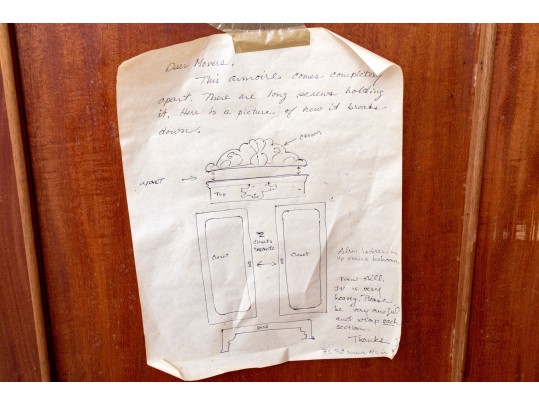 Dear Movers,
This armoire comes completely
apart. There are long screws holding
it. Here is a picture of how it breaks
down.
CROWN
APART
TOP
2
CLOSETS
SEPARATE
Closet
Closet
BASE
up stairs bedroom
It is very
heavy. Please
be very careful
and wrap each
section.
Thanks